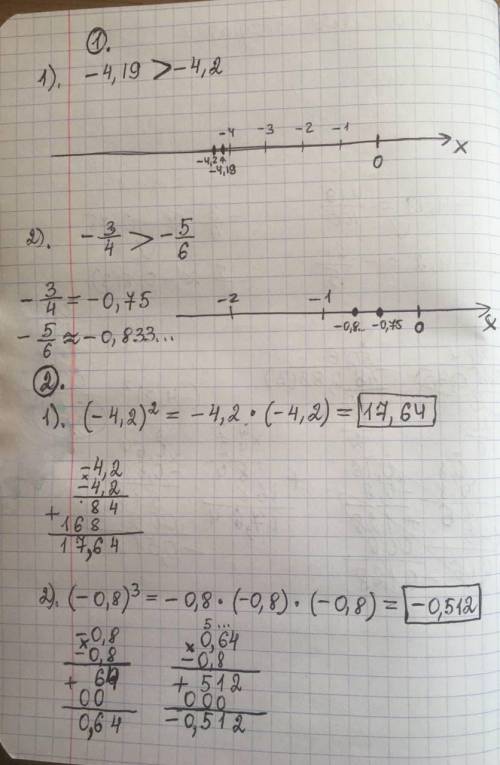 1.
1). -4,19 > -4,2
-4 -3 -2 -1
-4,2 -4,19 0 x
2). -3/4 > -5/6
-3/4 = -0,75
-2 -1
-0,8... -0,75 0 x
-5/6 ≈ -0,833...
2.
1). (-4,2)² = -4,2 · (-4,2) = 17,64
-4,2
× -4,2
84
+ 168
17,64
2). (-0,8)³ = -0,8 · (-0,8) · (-0,8) = -0,512
-0,8
× -0,8
+ 64
00
0,64
5...
0,64
× -0,8
+ 512
000
-0,512